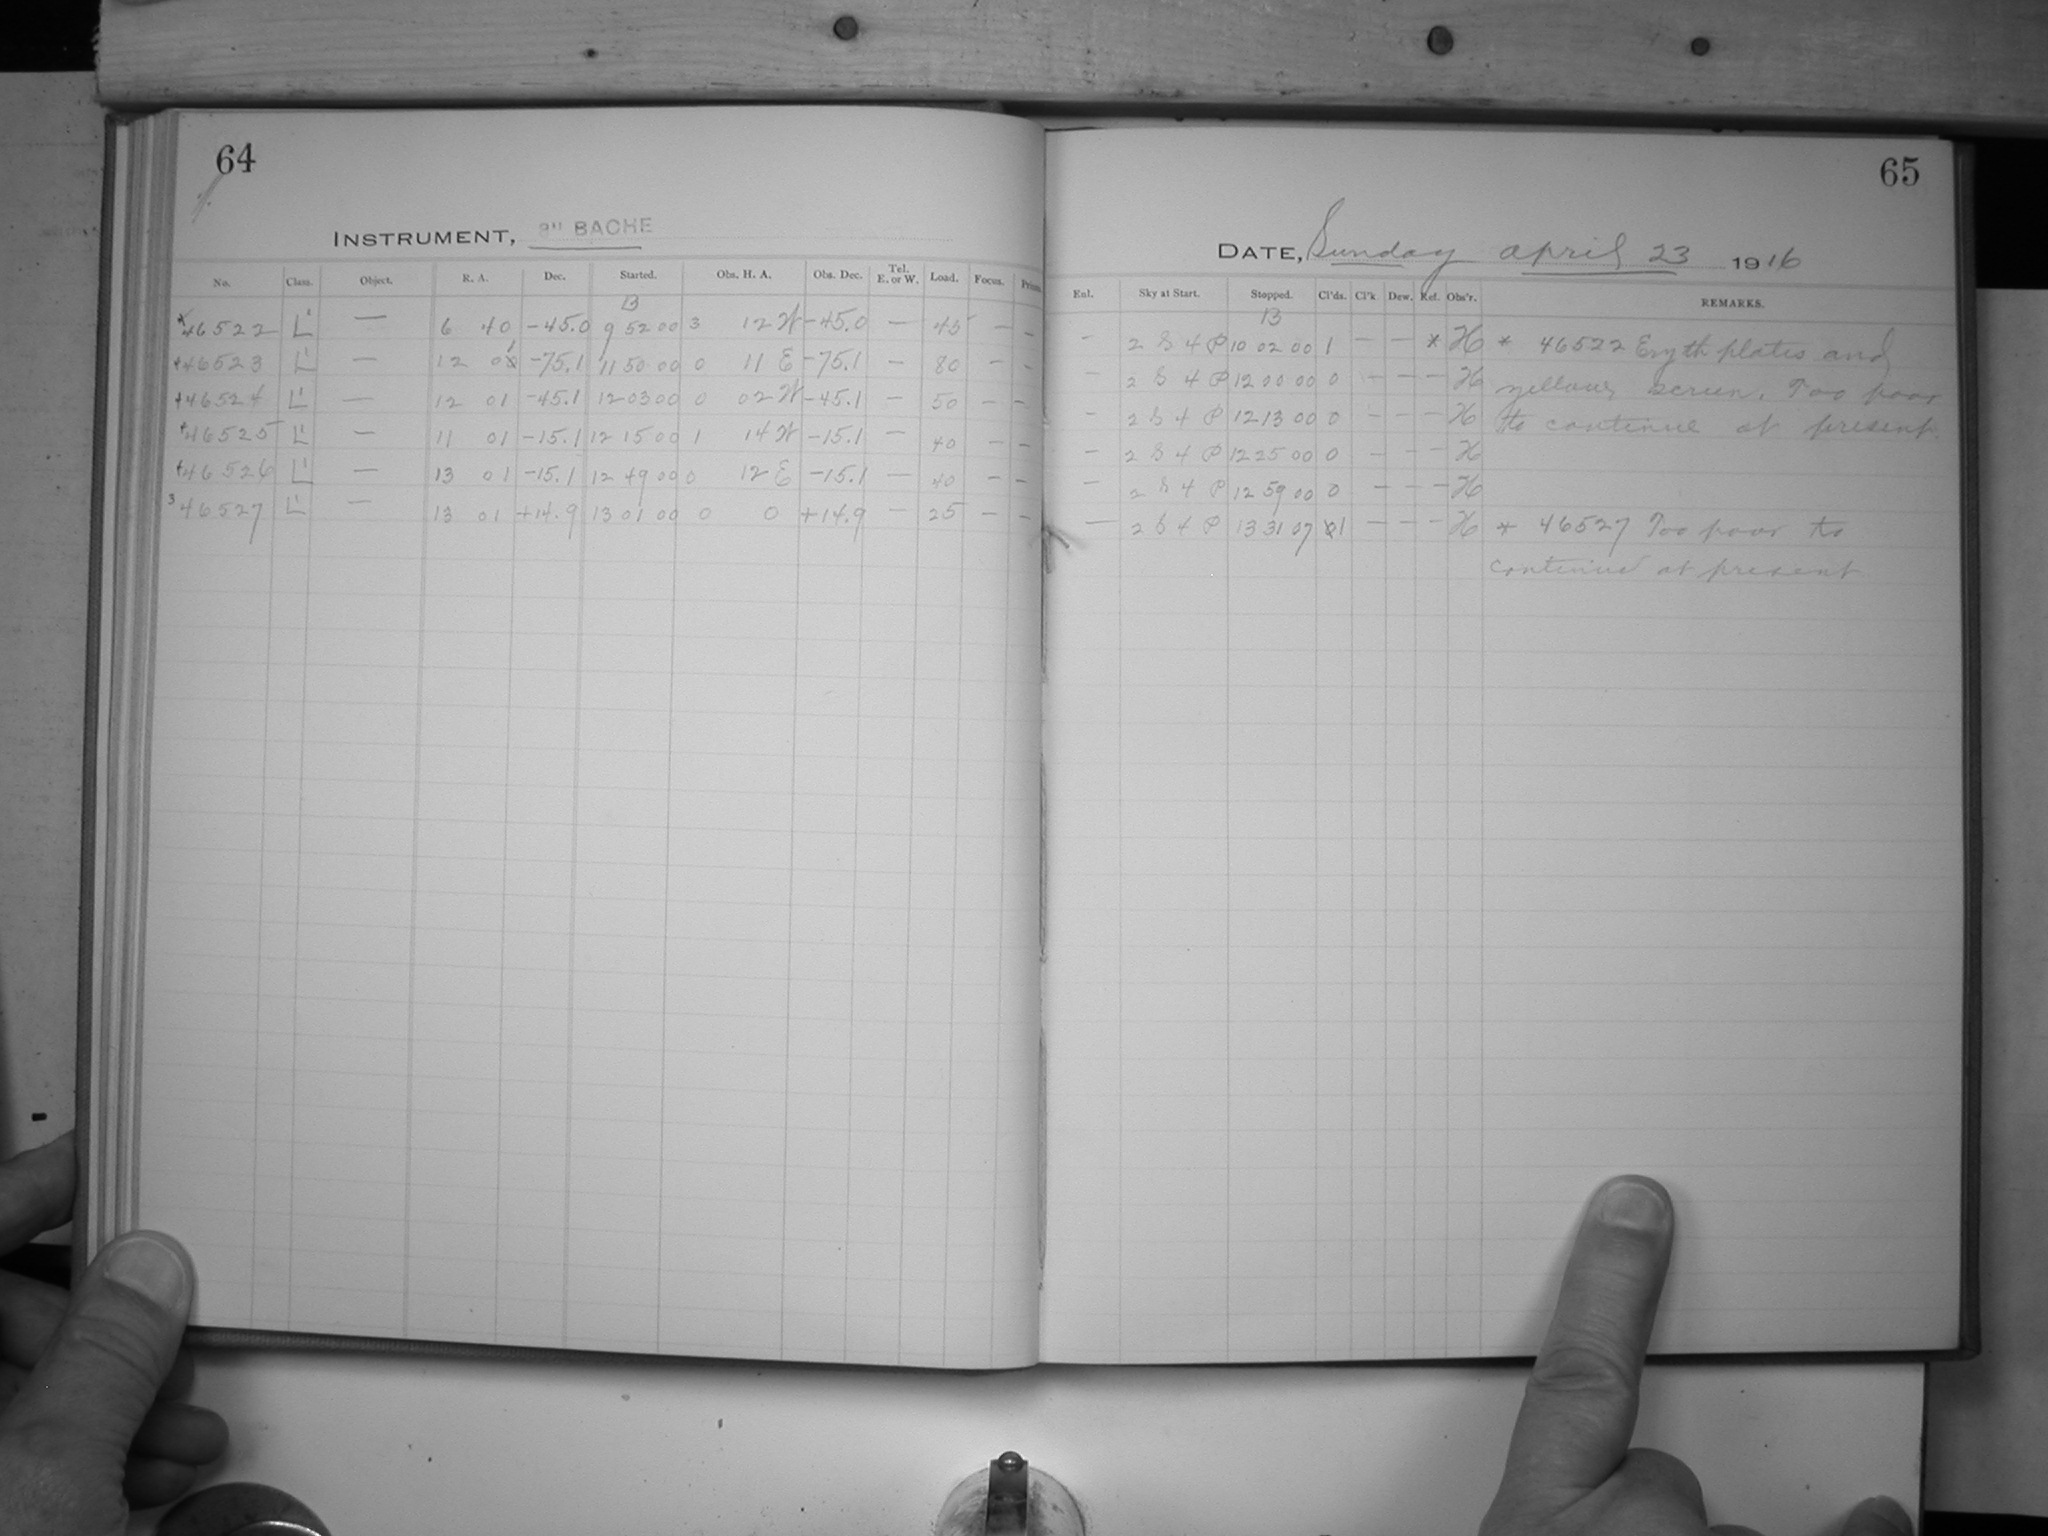 64
INSTRUMENT, 8" BACHE
No. Class. Object. R. A. Dec. Started. Obs. H. A. Obs. Dec. Tel. E. or W. Load. Focus.
13
46522 L' — 6 40 -45.0 9 52 00 3 12 W -45.0 — 45 — —
46523 L' — 12 01 -75.1 11 50 00 0 11 E -75.1 — 80 — —
46524 L' — 12 01 -45.1 12 03 00 0 02 W -45.1 — 50 — —
46525 L' — 11 01 -15.1 12 15 00 1 14 W -15.1 — 40 — —
46526 L' — 13 01 -15.1 12 49 00 0 12 E -15.1 — 40 — —
46527 L' — 13 01 +14.9 13 01 00 0 0 +14.9 — 25 — —
65
DATE, Sunday April 23 1916
Enl. Sky at Start. Stopped. Cl'ds. Cl'k Dew. Ref. Obs'r. REMARKS.
13
— 2 S 4 P 10 02 00 1 — — * H * 46522 Eryth plates and
— 2 S 4 P 12 00 00 0 — — — H yellow screen. Too poor
— 2 S 4 P 12 13 00 0 — — — H to continue at present.
— 2 S 4 P 12 25 00 0 — — — H
— 2 S 4 P 12 59 00 0 — — — H
— 2 S 4 P 13 31 07 1 — — — H * 46527 Too poor to
continue at present